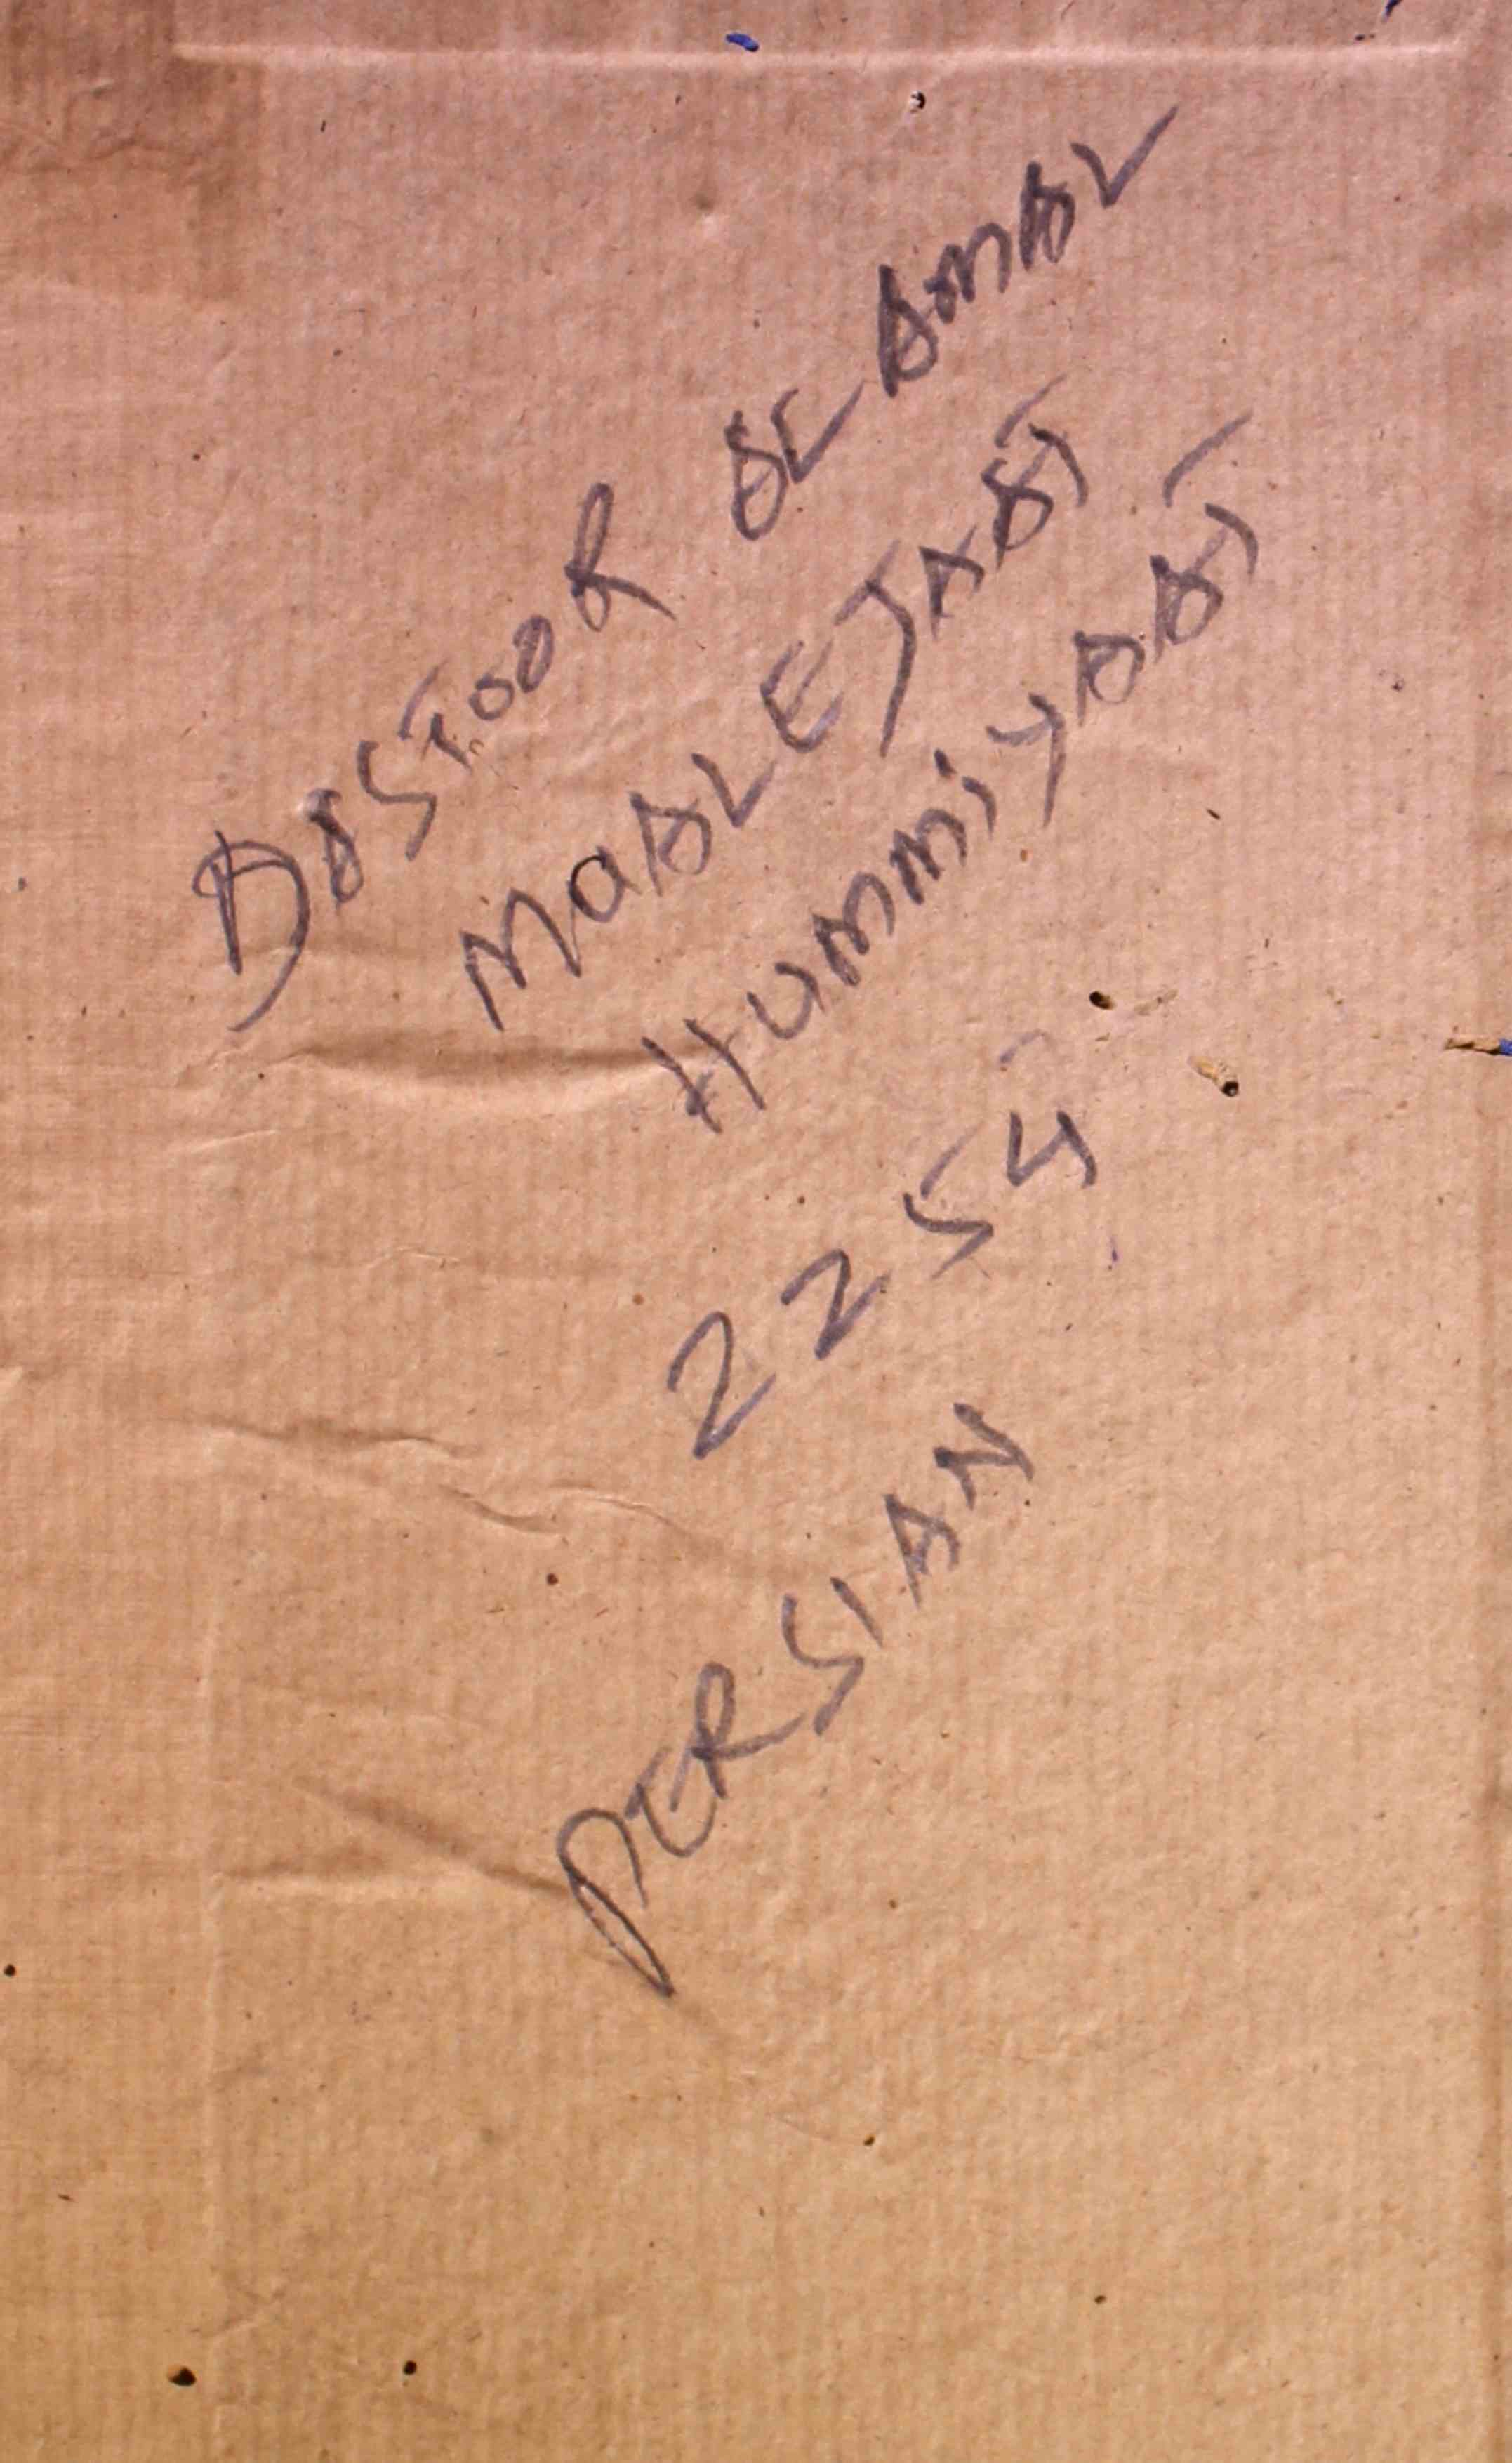 DASTOOR AL AMAL
MUALEJAAT
HUMMIYAAT
2254
PERSIAN